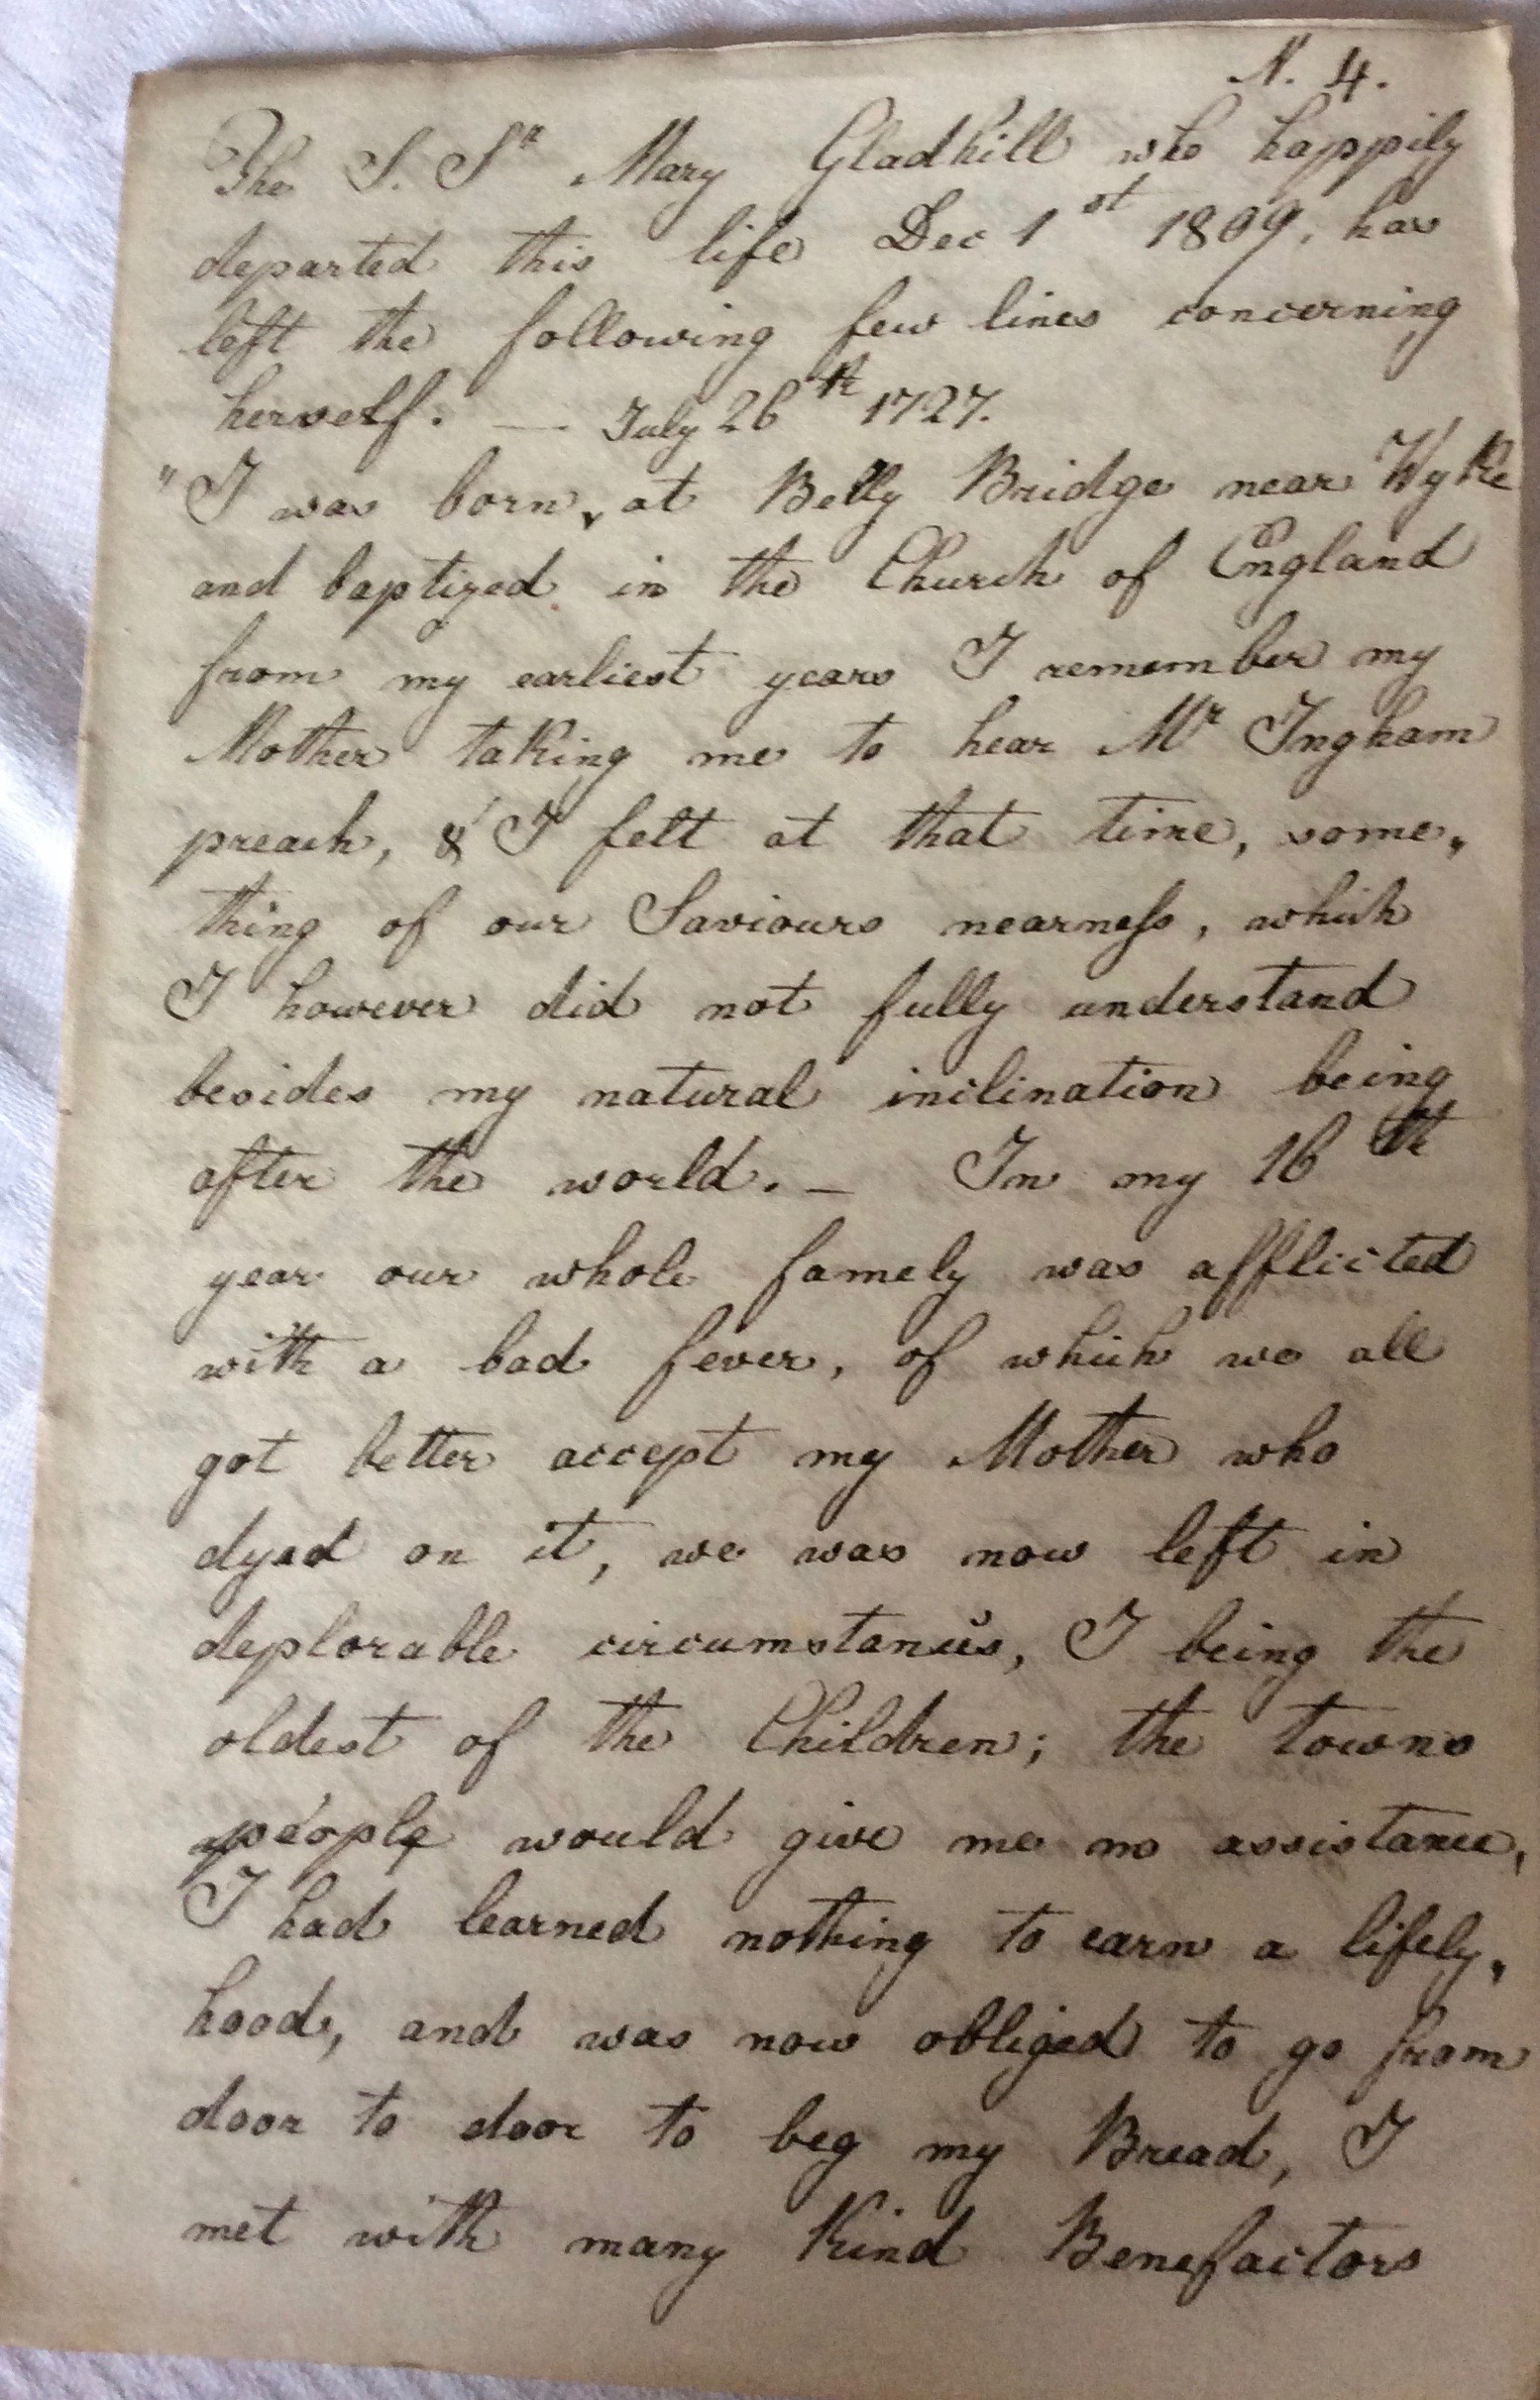 N. 4.
The S. Sr Mary Gladhill who happily
departed this life Dec 1st 1809, has
left the following few lines concerning
herself. — July 26th 1727.
"I was born, at Belly Bridge near Wyke
and baptized in the Church of England
from my earliest years I remember my
Mother taking me to hear Mr Ingham
preach, & I felt at that time, some„
thing of our Saviours nearness, which
I however did not fully understand
besides my natural inclination being
after the world. — In my 16th
year our whole famely was afflicted
with a bad fever, of which we all
got better accept my Mother who
dyed on it, we was now left in
deplorable circumstances, I being the
oldest of the Children; the towns
people would give me no assistance,
I had learned nothing to earn a lifely„
hood, and was now obliged to go from
door to door to beg my Bread, I
met with many Kind Benefactors